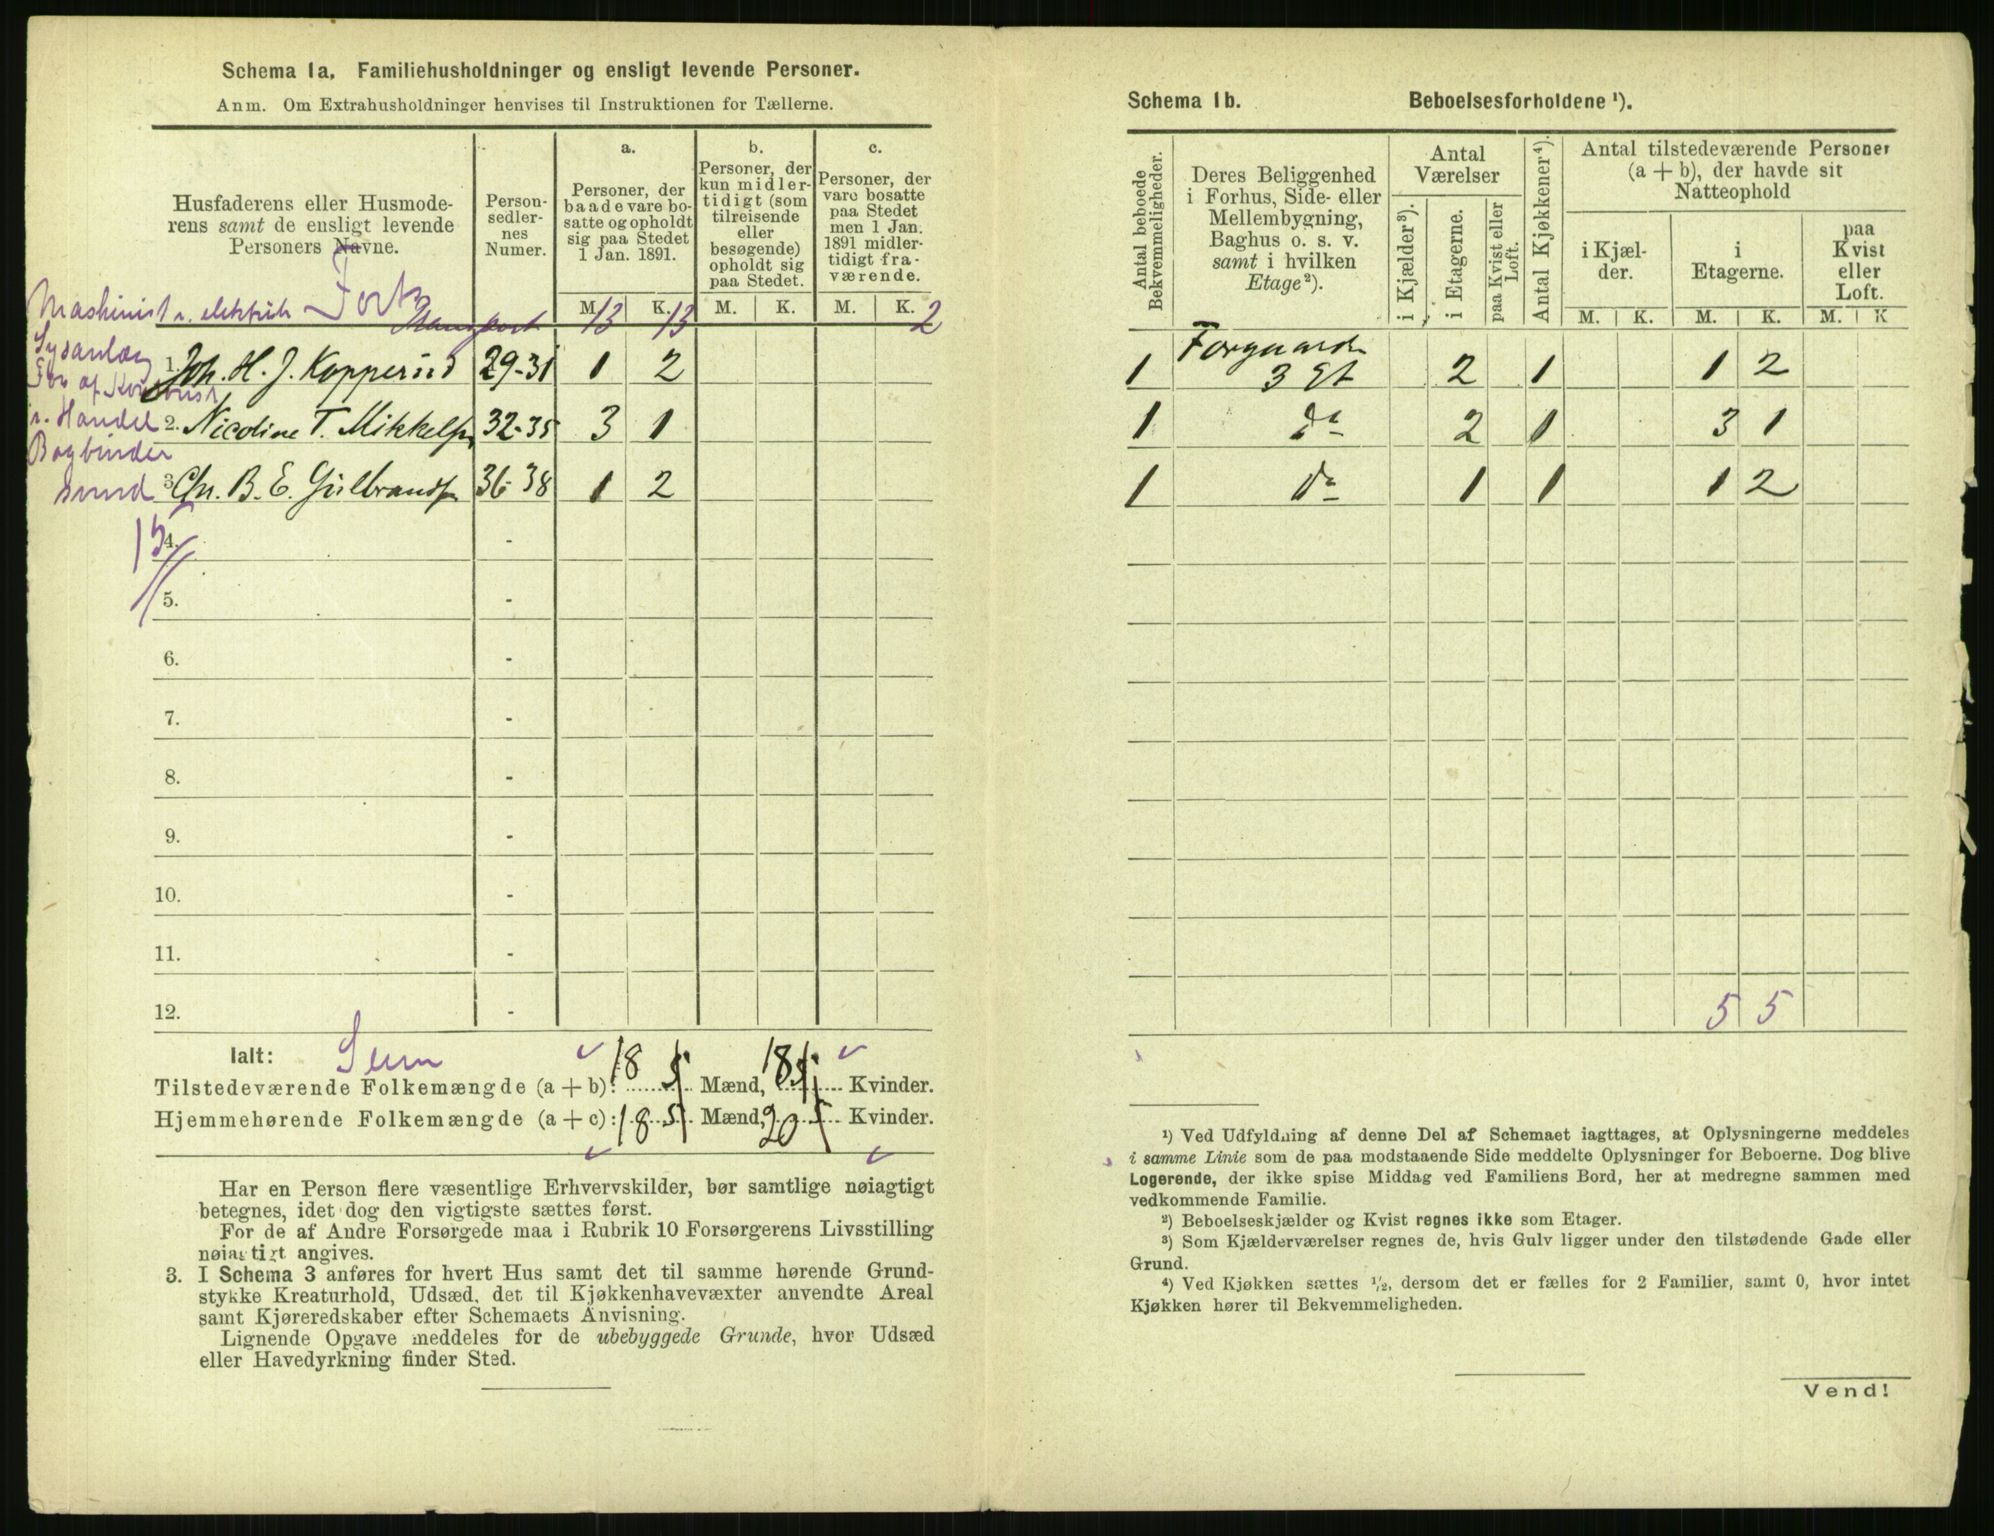 Schema 1a. Familiehusholdninger og ensligt levende Personer.
Anm. Om Extrahusholdninger henvises til Instruktionen for Tællerne.
Husfaderens eller Husmoderens samt de ensligt levende Personers Navne.
Person-sedlernes Numer.
a.
Personer, der baade vare bosatte og opholdt sig paa Stedet 1 Jan. 1891.
b.
Personer, der kun midlertidigt (som tilreisende eller besøgende) opholdt sig paa Stedet.
c.
Personer, der vare bosatte paa Stedet men 1 Jan. 1891 midlertidigt fraværende.
M. K. M. K. M. K.
Maskinist v. elektrisk
Lysanlæg
Transport 13 13 2
1. Joh. H. J. Kopperud 29-31 1 2
v. Handel
2. Nicoline T. Mikkelsen 32-35 3 1
Bogbinder
svend
3. Chr. B. E. Gulbrandsen 36-38 1 2
15
4. -
5. -
6. -
7. -
8. -
9. -
10. -
11. -
12. -
Ialt: Sum
Tilstedeværende Folkemængde (a + b): 18 5 Mænd, 18 5 Kvinder.
Hjemmehørende Folkemængde (a + c): 18 5 Mænd, 20 5 Kvinder.
Har en Person flere væsentlige Erhvervskilder, bør samtlige nøiagtigt
betegnes, idet dog den vigtigste sættes først.
For de af Andre Forsørgede maa i Rubrik 10 Forsørgerens Livsstilling
nøiagtigt angives.
3. I Schema 3 anføres for hvert Hus samt det til samme hørende Grund-
stykke Kreaturhold, Udsæd, det til Kjøkkenhavevæxter anvendte Areal
samt Kjøreredskaber efter Schemaets Anvisning.
Lignende Opgave meddeles for de ubebyggede Grunde, hvor Udsæd
eller Havedyrkning finder Sted.
Schema 1b. Beboelsesforholdene ¹).
Antal beboede Bekvemmeligheder.
Deres Beliggenhed i Forhus, Side- eller Mellembygning, Baghus o. s. v. samt i hvilken Etage²).
Antal Værelser
i Kjælder³).
i Etagerne.
paa Kvist eller Loft.
Antal Kjøkkener⁴).
Antal tilstedeværende Personer (a + b), der havde sit Natteophold
i Kjælder.
i Etagerne.
paa Kvist eller Loft.
M. K. M. K. M. K
1 Forgaarden 3 Et 2 1 1 2
1 do 2 1 3 1
1 do 1 1 1 2
5 5
¹) Ved Udfyldning af denne Del af Schemaet iagttages, at Oplysningerne meddeles
i samme Linie som de paa modstaaende Side meddelte Oplysninger for Beboerne. Dog blive
Logerende, der ikke spise Middag ved Familiens Bord, her at medregne sammen med
vedkommende Familie.
²) Beboelseskjælder og Kvist regnes ikke som Etager.
³) Som Kjælderværelser regnes de, hvis Gulv ligger under den tilstødende Gade eller
Grund.
⁴) Ved Kjøkken sættes ¹/₂, dersom det er fælles for 2 Familier, samt 0, hvor intet
Kjøkken hører til Bekvemmeligheden.
Vend!